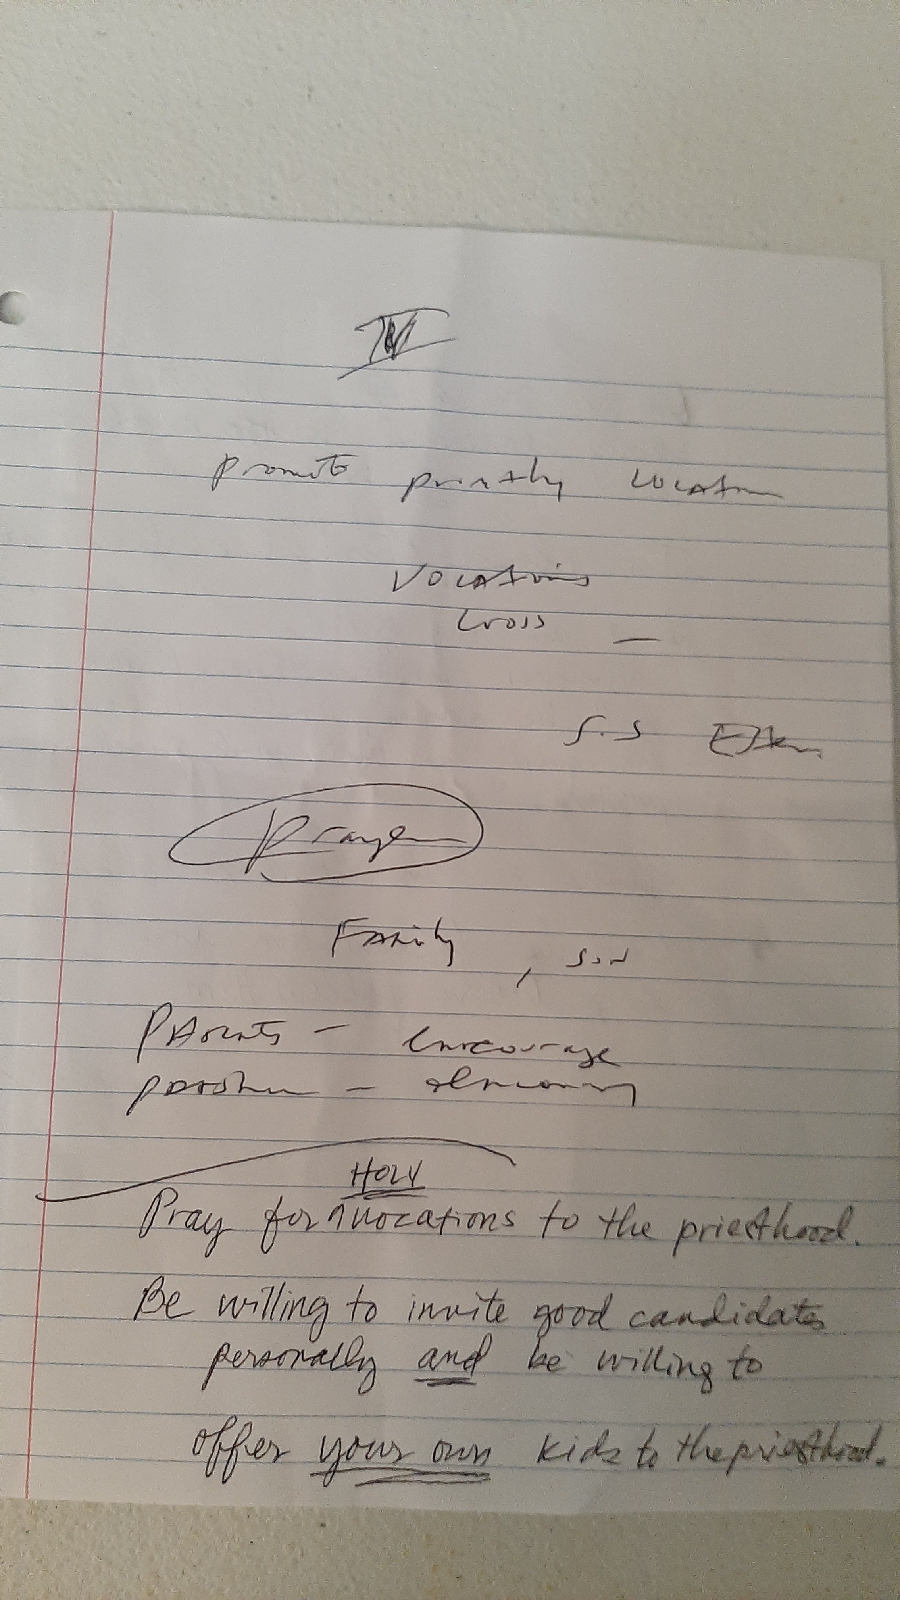 IV
promote priestly vocation
Vocations
Cross —
Prayer
Family , son
Parents — encourage
HOLY
Pray for vocations to the priesthood.
Be willing to invite good candidates
personally and be willing to
offer your own kids to the priesthood.